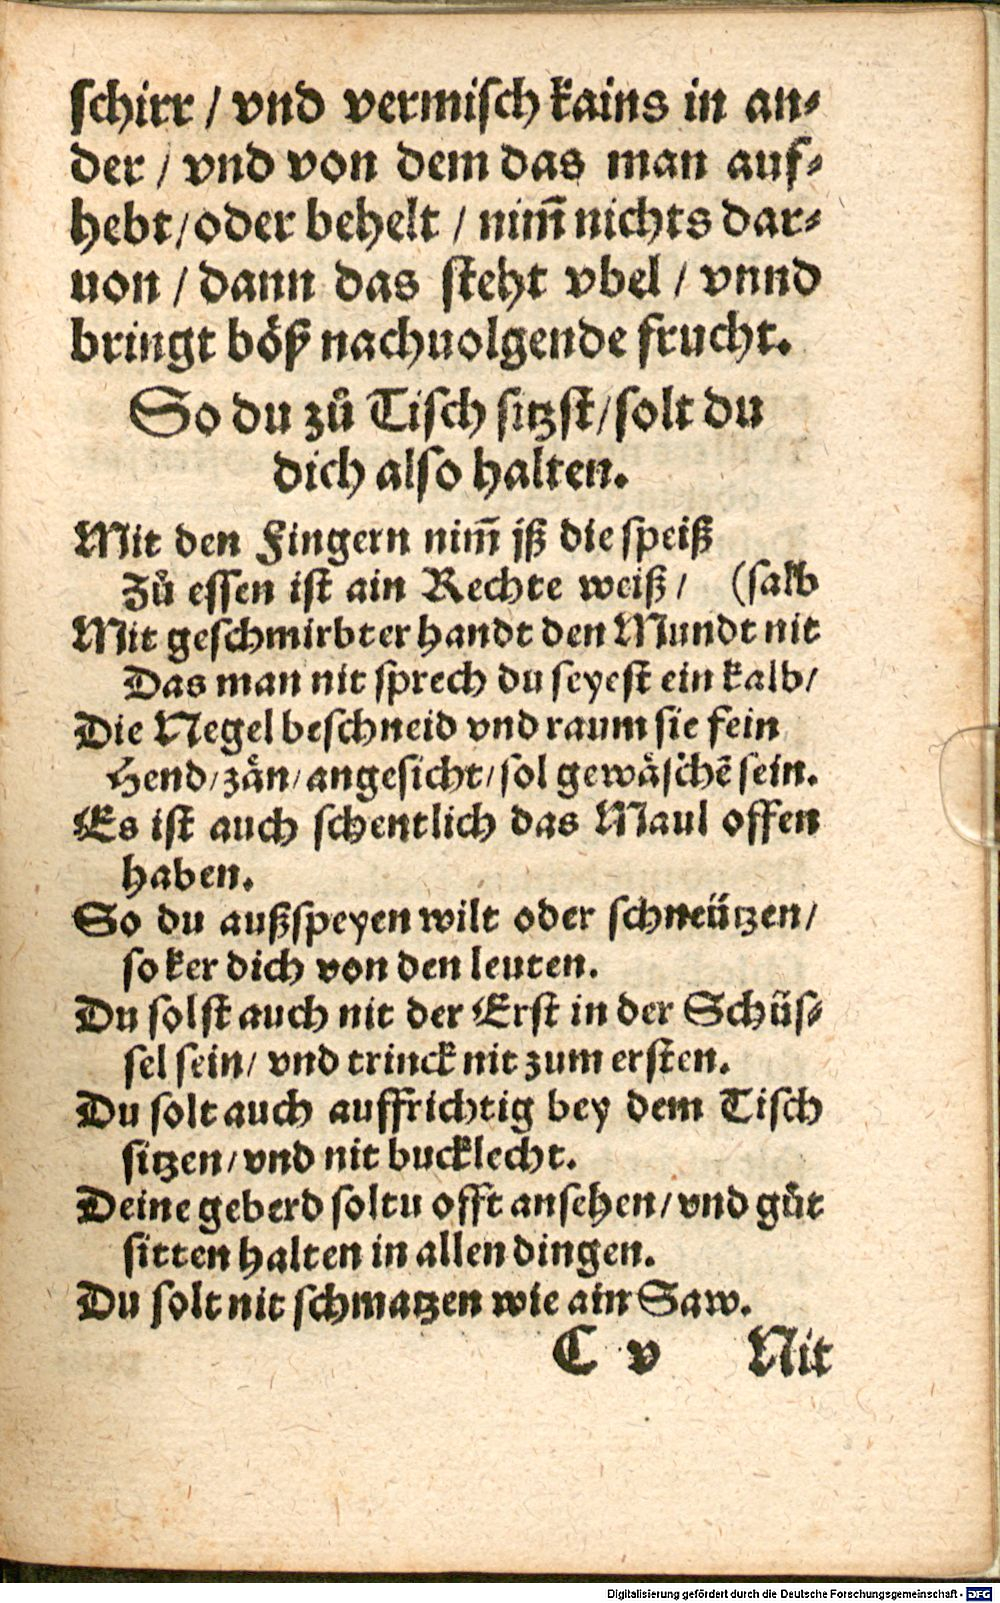 schirr / vnd vermisch kains in an⸗
der / vnd von dem das man auf⸗
hebt / oder behelt / nim̃ nichts dar⸗
uon / dann das steht vbel / vnnd
bringt böß nachuolgende frucht.
So du zů Tisch sitzst / solt du
dich also halten.
Mit den Fingern nim̃ jß die speiß
Zů essen ist ain Rechte weiß / (salb
Mit geschmirbter handt den Mundt nit
Das man nit sprech du seyest ein kalb /
Die Negel beschneid vnd raum sie fein
Hend / zän / angesicht / sol gewäschẽ sein.
Es ist auch schentlich das Maul offen
haben.
So du außspeyen wilt oder schneützen /
so ker dich von den leuten.
Du solst auch nit der Erst in der Schüs⸗
sel sein / vnd trinck nit zum ersten.
Du solt auch auffrichtig bey dem Tisch
sitzen / vnd nit bucklecht.
Deine geberd soltu offt ansehen / vnd gůt
sitten halten in allen dingen.
Du solt nit schmatzen wie ain Saw.
C v Nit
Digitalisierung gefördert durch die Deutsche Forschungsgemeinschaft - DFG